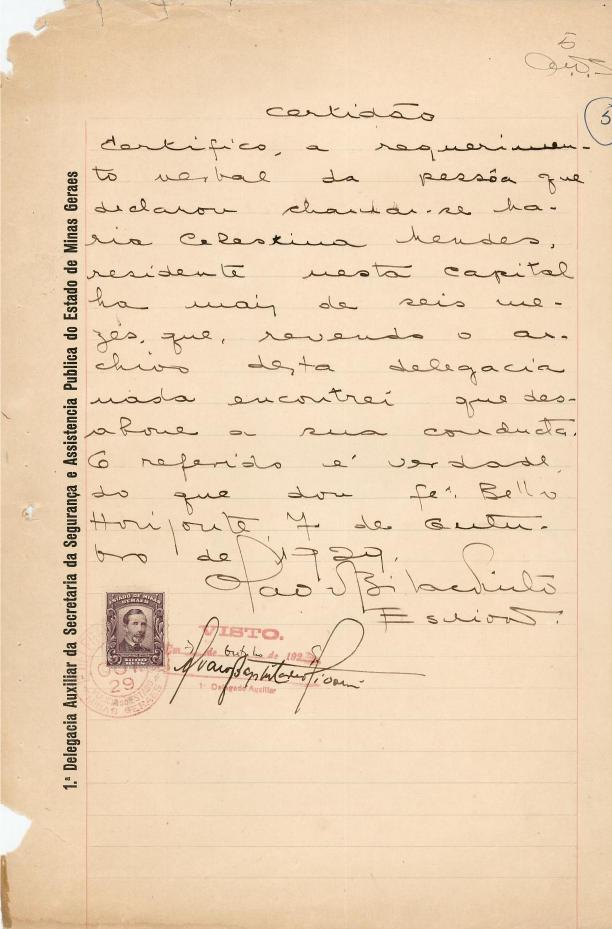 5
5
1.ª Delegacia Auxiliar da Secretaria da Segurança e Assistencia Publica do Estado de Minas Geraes
Certidão
Certifico, a requerimen-
to verbal da pessôa que
declarou chamar-se Ma-
ria Celestina Mendes,
residente nesta capital
ha mais de seis me-
zes, que, revendo o ar-
chivo desta delegacia
nada encontrei que des-
abone a sua conducta.
O referido é verdade,
do que dou fé. Bello
Horizonte, 7 de Outu-
bro de 1929.
Escrivão.
ESTADO DE MINAS
GERAES
VISTO.
Em 7 de Outubro de 1929
1º Delegado Auxiliar
OUT
29
MINAS GERAES